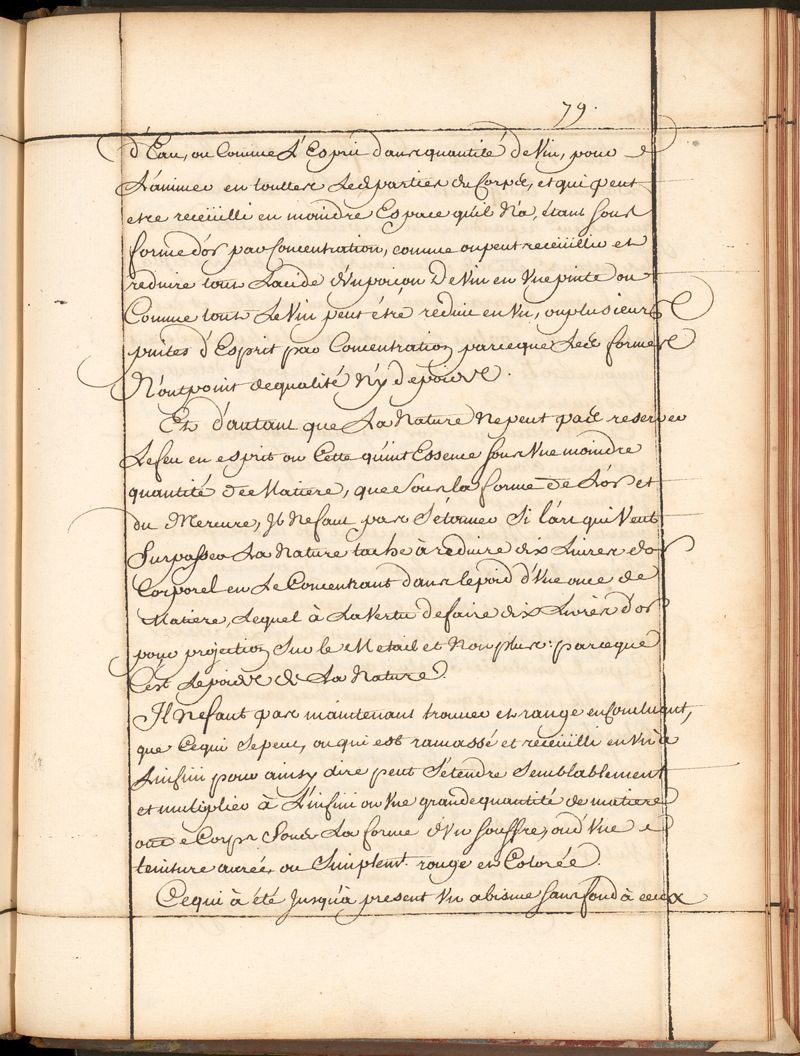 79.
d'Eau, ou Comme L'Esprit dans quantité de Vin, pour
L'animer en touttes Les parties du Corps, et qui peut
etre receüilli en moindre Espace qu'il N'a, étant sous
forme d'or par Concentration, comme on peut receüillir et
reduire tout Lacide d'Un poiçon De Vin en Vne pinte ou
Comme tout Le Vin peut étre reduit en Vn, ou plusieurs
pintes d'Esprit par Concentration parceque Les formes
N'ont point de qualité N'y de poids.
Et d'autant que La Nature Ne peut pas reserrer
Le feu en esprit ou Cette quint Essence sous Vne moindre
quantité de Matiere, que Sous la forme de L'or et
du Mercure, Il Ne faut pas S'étonner Si l'art qui Veut
Surpasser La Nature tache à reduire dix Livres d'or
Corporel en Le Concentrant dans le poid d'Vne once de
Matiere, Lequel à La Vertu de faire dix Livres d'or
pour projection Sur le Metail et Non plus: parceque
C'est Le poids de La Nature.
Il Ne faut pas maintenant trouver etrange en Concluant,
que Cequi Se peut, ou qui est ramassé et receüilli en Vn à
L'infini pour ainsy dire peut S'étendre Semblablement
et multiplier à L'infini ou Vne grande quantité de matiere
Corps Sous La forme d'Vn souffre, ou d'Vne
teinture aurée, ou Simplemt. rouge et Colorée.
Cequi à été Jusqu'à present Vn abisme sans fond à ceux